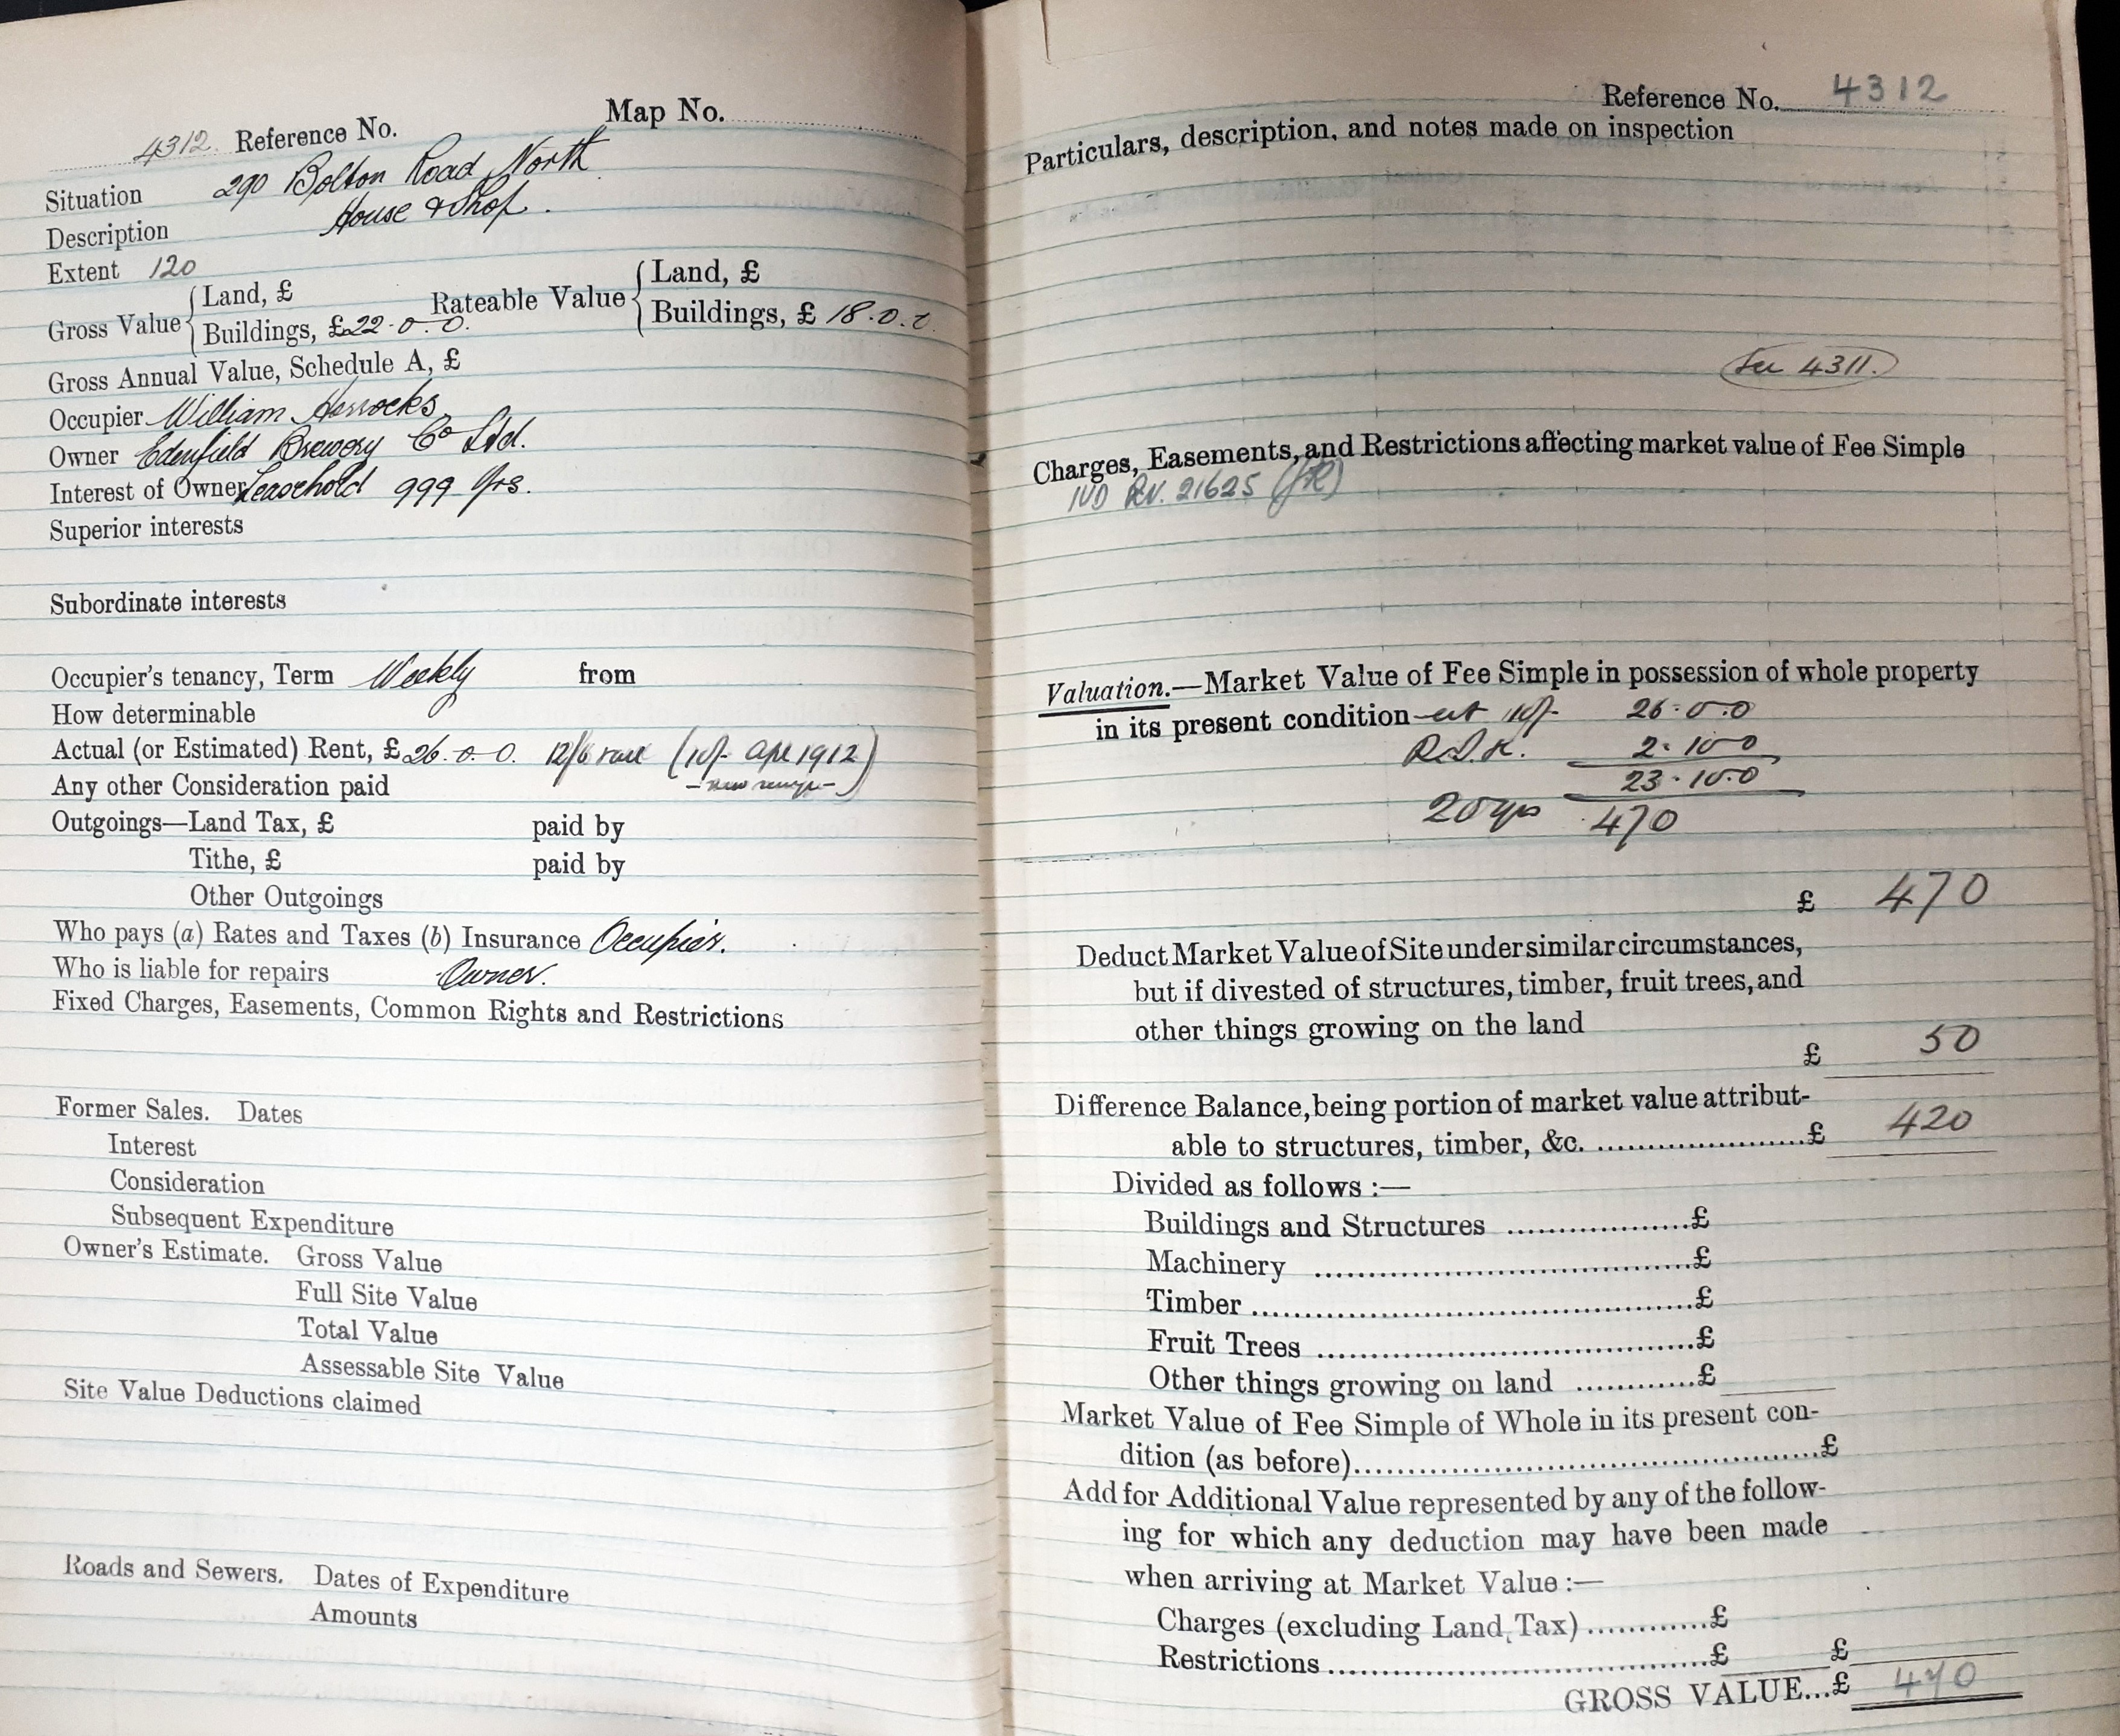 Map No.
4312 Reference No.
Situation 290 Bolton Road North
Description House & Shop.
Extent 120
Gross Value { Land, £
Buildings, £22.0.0. Rateable Value { Land, £
Buildings, £ 18.0.0.
Gross Annual Value, Schedule A, £
Occupier William Horrocks
Owner Edenfield Brewery Co Ltd.
Interest of Owner Leasehold 999 Yrs.
Superior interests
Subordinate interests
Occupier's tenancy, Term Weekly from
How determinable
Actual (or Estimated) Rent, £26.0.0. 12/6 (10/- Apl 1912)
Any other Consideration paid
Outgoings—Land Tax, £ paid by
Tithe, £ paid by
Other Outgoings
Who pays (a) Rates and Taxes (b) Insurance Occupier.
Who is liable for repairs Owner.
Fixed Charges, Easements, Common Rights and Restrictions
Former Sales. Dates
Interest
Consideration
Subsequent Expenditure
Owner's Estimate. Gross Value
Full Site Value
Total Value
Assessable Site Value
Site Value Deductions claimed
Roads and Sewers. Dates of Expenditure
Amounts
Reference No. 4312
Particulars, description, and notes made on inspection
See 4311.
Charges, Easements, and Restrictions affecting market value of Fee Simple
IVD RV. 21625
Valuation.—Market Value of Fee Simple in possession of whole property
in its present condition at 10/- 26.0.0
2.10.0
23.10.0
20 yrs 470
£ 470
Deduct Market Value of Site under similar circumstances,
but if divested of structures, timber, fruit trees, and
other things growing on the land
£ 50
Difference Balance, being portion of market value attribut-
able to structures, timber, &c. ....................£ 420
Divided as follows :—
Buildings and Structures .................£
Machinery ...................................£
Timber.........................................£
Fruit Trees ...................................£
Other things growing on land ............£
Market Value of Fee Simple of Whole in its present con-
dition (as before)...........................................£
Add for Additional Value represented by any of the follow-
ing for which any deduction may have been made
when arriving at Market Value :—
Charges (excluding Land Tax)............£
Restrictions...................................£ £
GROSS VALUE...£ 470